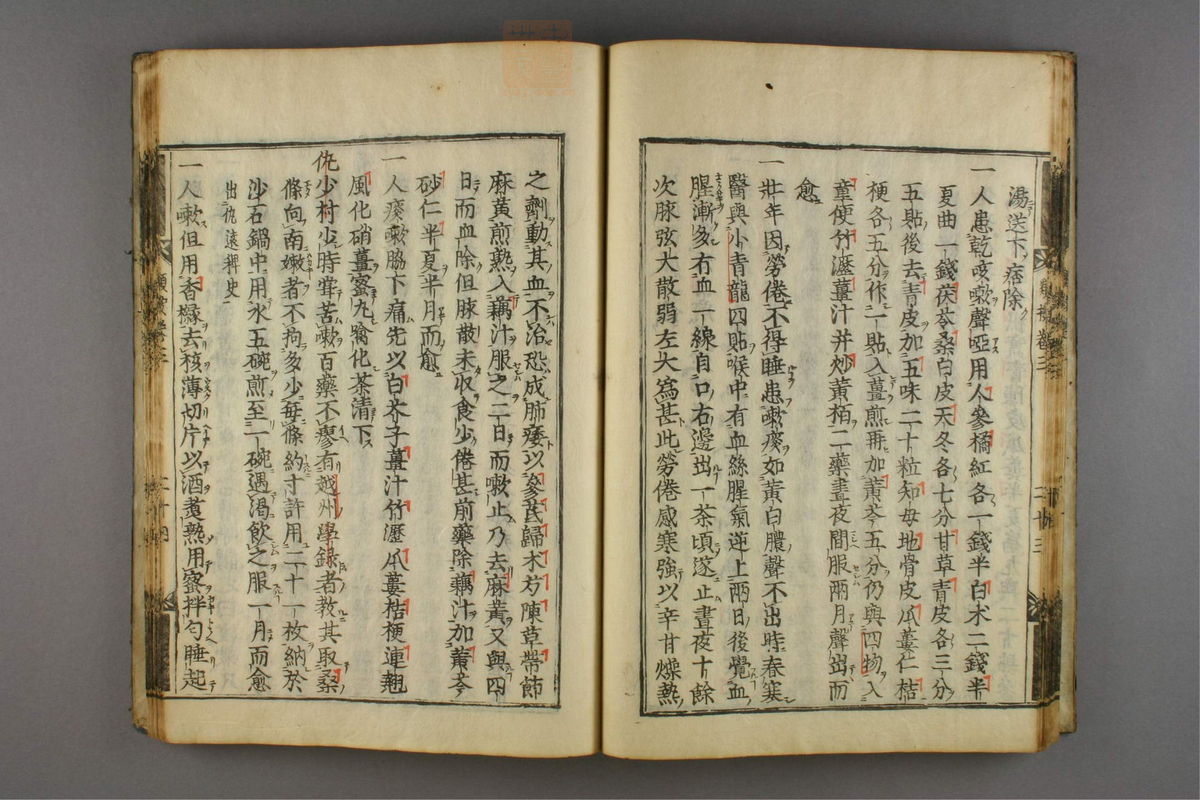 湯送下痞除
一人患乾咳嗽聲啞用人參橘紅各一錢半白朮二錢半
夏曲一錢茯苓桑白皮天冬各七分甘草青皮各三分
五貼後去青皮加五味二十粒知母地骨皮瓜蔞仁桔
梗各五分作一貼入薑煎再加黄芩五分仍與四物入
童便竹瀝薑汁并炒黄栢二藥晝夜間服兩月聲出而
愈
一壯年因勞倦不得睡患嗽痰如黄白膿聲不出時春寒
醫與小青龍四貼喉中有血絲腥氣逆上兩日後覺血
腥漸多有血一線自口右邊出一茶頃遂止晝夜十餘
次脉弦大散弱左大為甚此勞倦感寒強以辛甘燥熱
之劑動其血不治恐成肺痿以參芪歸术芍陳草帶節
麻黄煎熟入藕汁服之二日而嗽止乃去麻黄又與四
日而血除但脉散未収食少倦甚前藥除藕汁加黄芩
砂仁半夏半月而愈
一人痰嗽脇下痛先以白芥子薑汁竹瀝瓜蔞桔梗連翹
風化硝薑蜜丸噙化茶清下
仇少村少時甞苦嗽百藥不瘳有越州學録者教其取桑
條向南嫩者不拘多少毎條約寸許用二十一枚納於
沙石鍋中用水五碗煎至一碗遇渇飲之服一月而愈
出仇遠稗史
一人嗽但用香櫞去核薄切片以酒煮熟用蜜拌匀睡起